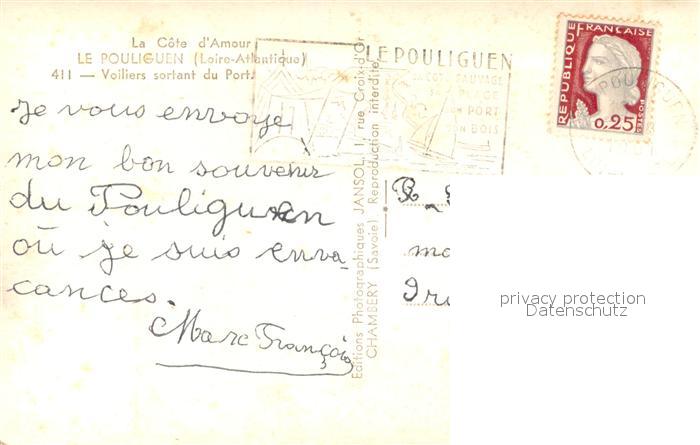 La Côte d'Amour
LE POULIGUEN (Loire-Atlantique)
411 — Voiliers sortant du Port.
je vous envoye
mon bon souvenir
du Pouliguen
où je suis enva-
cances.
Marc François
Editions Photographiques JANSOL, 1, rue Croix-d'Or
CHAMBERY (Savoie) Reproduction interdite
LE POULIGUEN
SA COTE SAUVAGE
SA PLAGE
SON PORT
SON BOIS
REPUBLIQUE FRANÇAISE
POSTES
0,25
POULIGUEN
mo
privacy protection
Datenschutz